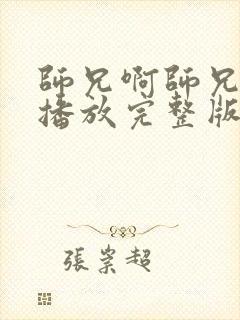 師兄啊師兄
播放完整版
張崇超